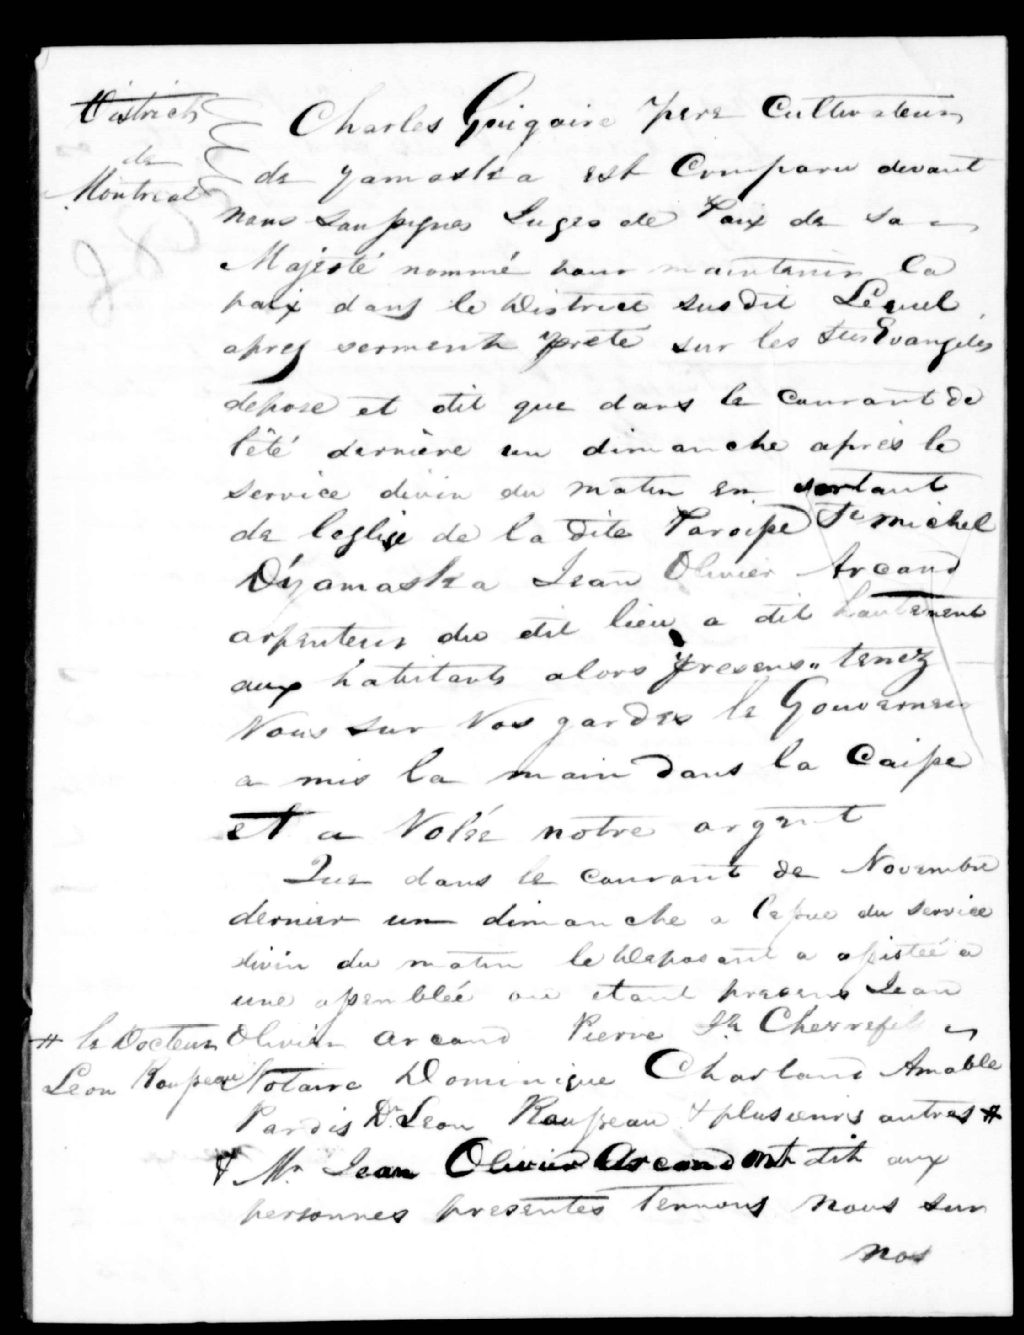 District
de
Montreal
Charles Guigaire pere Cultivateur
de yamaska est Comparu devant
nous Soussignes Juges de Paix de Sa
Majesté nommé pour maintenir la
paix dans le District susdit Lequel
apres serment prete sur les Sts Evangiles
depose et dit que dans le Courant de
l'été dernière un dimanche après le
service divin du matin en sortant
de leglise de la dite Paroisse St michel
D'yamaska Jean Olivier Arcand
arpenteur du dit lieu a dit hautement
aux habitants alors presens " tenez
Vous sur Vos gardes le Gouverneur
a mis la main dans la Caisse
et a Volée notre argent
Que dans le courant de Novembre
dernier un dimanche a lissue du service
divin du matin le Deposant a assistée a
une assemblée ou etant presens Jean
Olivier arcand Pierre
# le Docteur
Leon Rousseau
Notaire Dominique Charland Amable
Pardis Dr Leon Rousseau & plusieurs autres #
& Mr Jean Olivier Arcand ont dit aux
personnes presentes tennons nous sur
nos